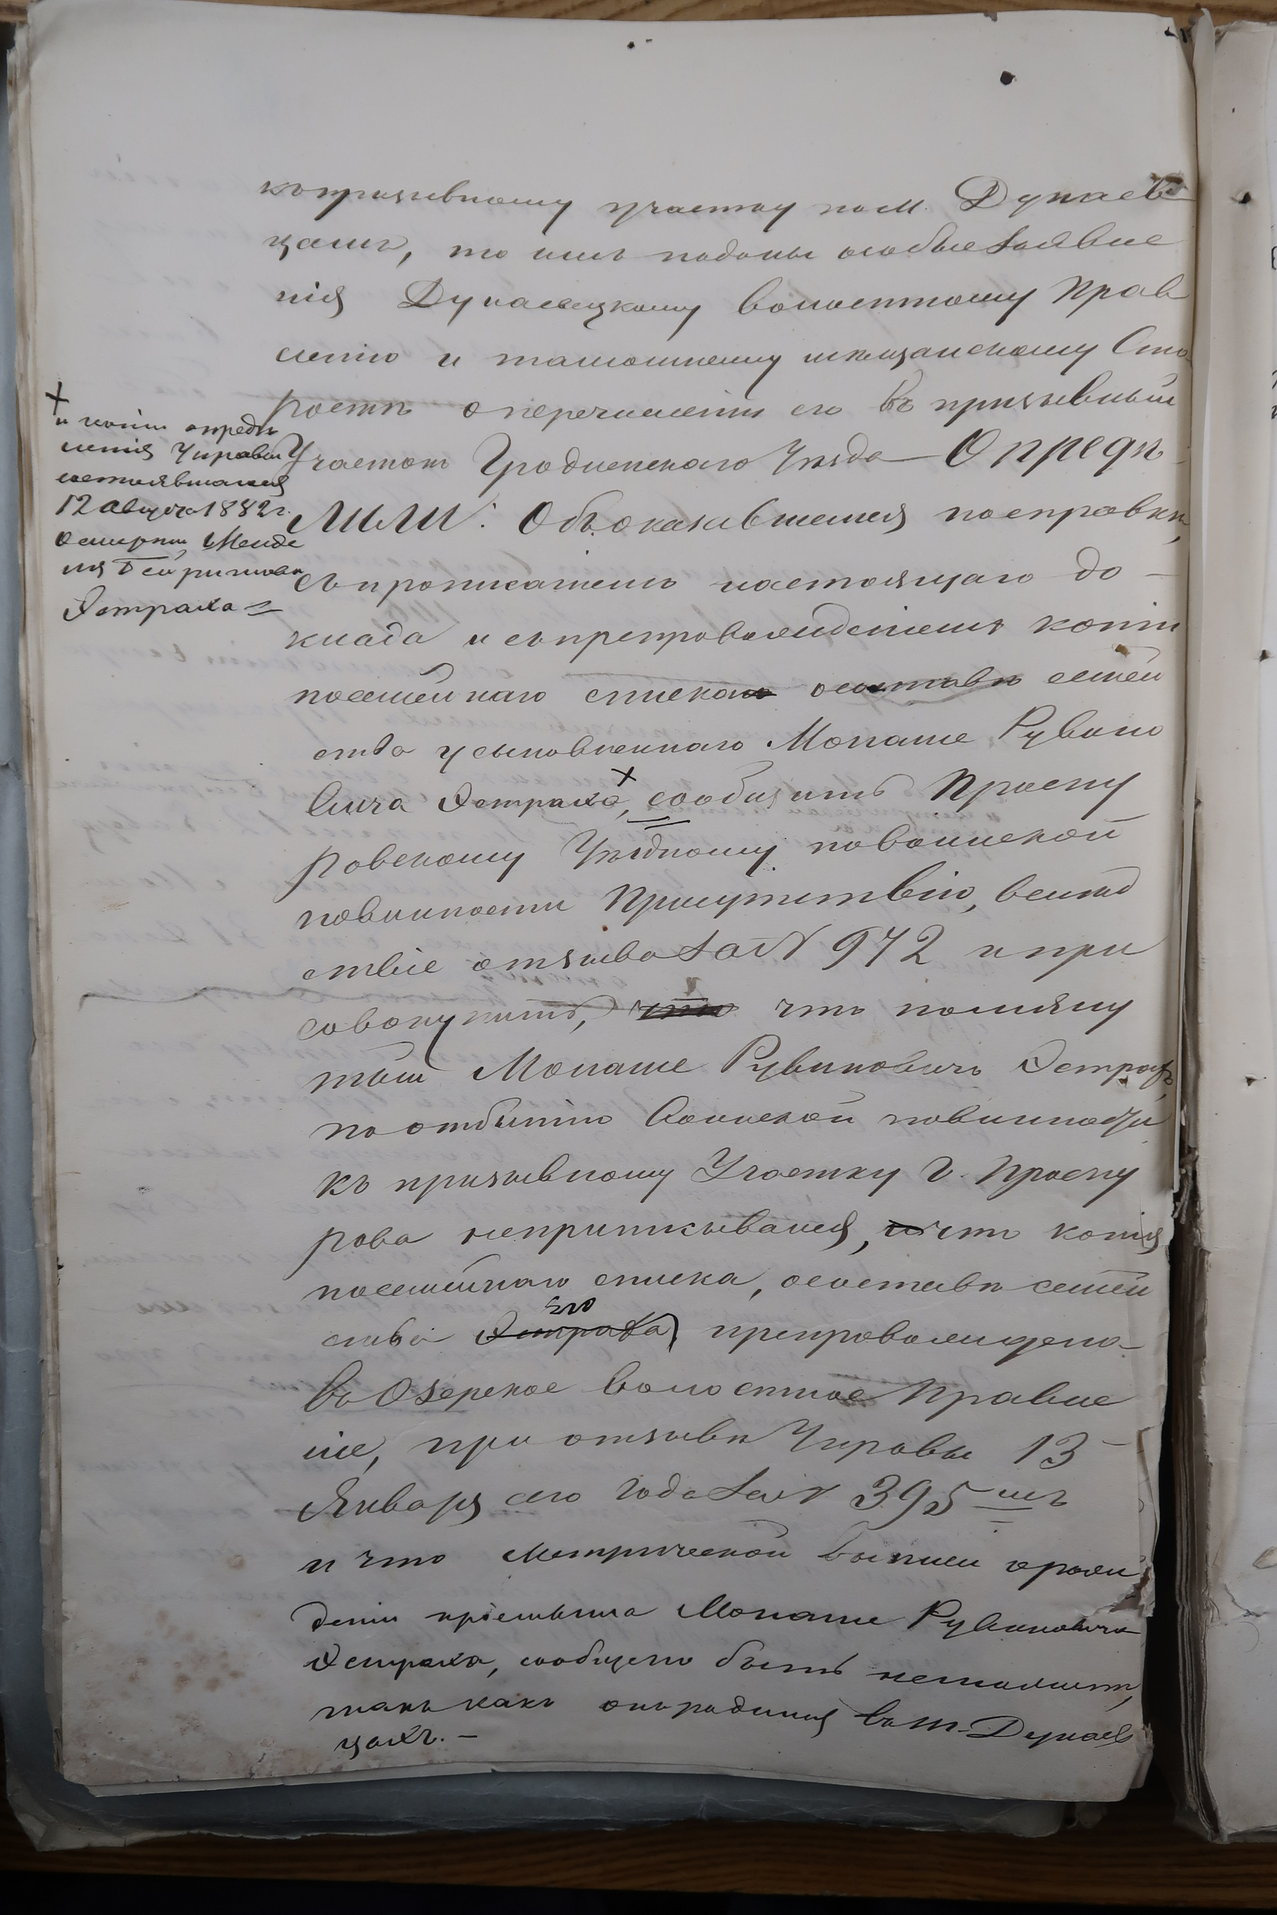 къ призывному участку по м. Дунаев
цамъ, то имъ поданы особые заявле
нія Дунаевецкому волостному Прав
ленію и тамошнему мѣщанскому Ста
ростѣ о перечисленіи его въ призывный
Участокъ Гродненскаго Уѣзда — Опредѣ
лили: Объ оказавшемся по справкѣ,
съ прописаніемъ настоящаго до-
клада и съ препровожденіемъ копіи
посемейнаго списка о составѣ семей
ства усыновленнаго Монаше Рувино
вича Эстраха, сообщить Проску
ровскому Уѣздному по воинской
повинности Присутствію, вслѣд
ствіе отзыва за N 972 и при
совокупить, что что помяну
тый Монаше Рувиновичъ Эстрахъ,
по отбытію воинской повинности
къ призывному Участку г. Проску
рова неприписывался, и что копія
посемейнаго списка, о составѣ семей
ства Эстраха его препровождена
въ Озерское волостное Правле
ніе, при отзывѣ Управы 13
Января сего года за N 395мъ
и что метрической выписи о рож
деніи пріемыша Монаше Рувиновича
Эстраха, сообщено быть неможетъ,
такъ какъ онъ родился въ м. Дунаев
цахъ. —
и копіи опредѣ
ленія Управы
состоявшагося
12 Августа 1882 г.
о смерти Менде
ля
Эстраха